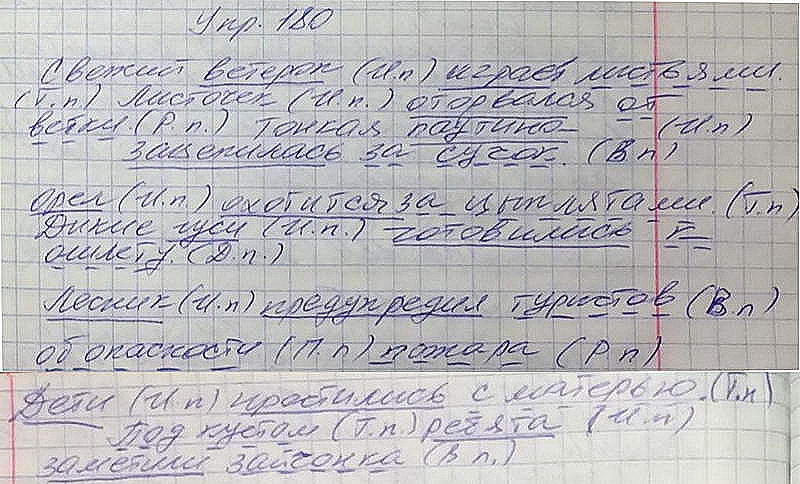 Упр. 180
Свежий ветерок (И.п) играет листьями.
(Т.п) Листочек (И.п.) оторвался от
ветки. (Р.п.) Тонкая паутина (И.п)
зацепилась за сучок. (В.п)
Орел (И.п) охотится за цыплятами. (Т.п)
Дикие гуси (И.п.) готовились к
отлёту. (Д.п.)
Лесник (И.п) предупредил туристов (В.п)
об опасности (П.п) пожара (Р.п)
Дети (И.п) простились с матерью. (Т.п)
Под кустом (Т.п.) ребята (И.п)
заметили зайчонка (В п.)